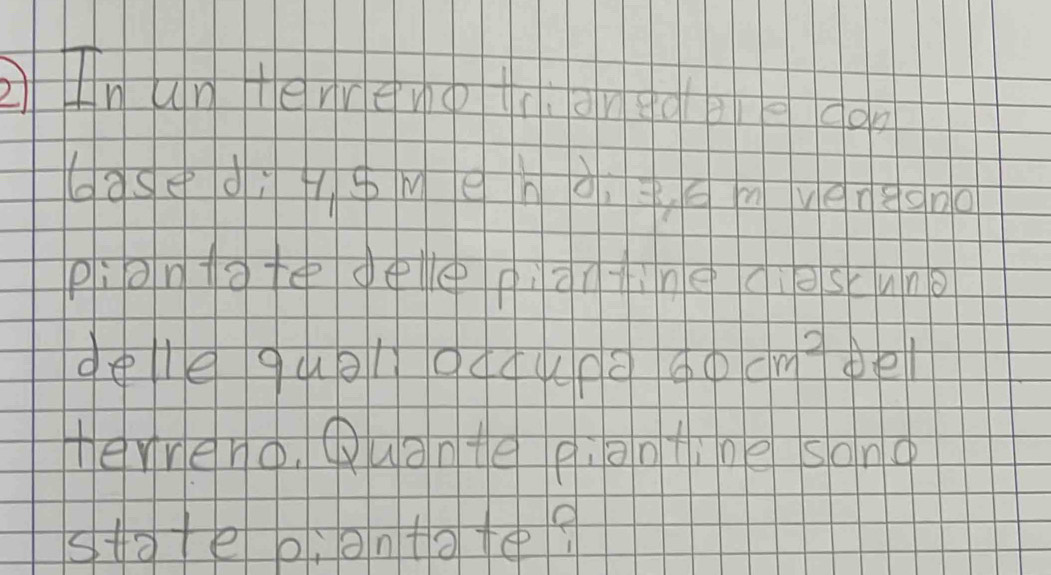 2) In un terreno triangolare con
base di 4,5 m e h di 3,6 m vengono
piantate delle piantine ciascuna
delle quali occupa 60 cm² del
terreno. Quante piantine sono
state piantate?